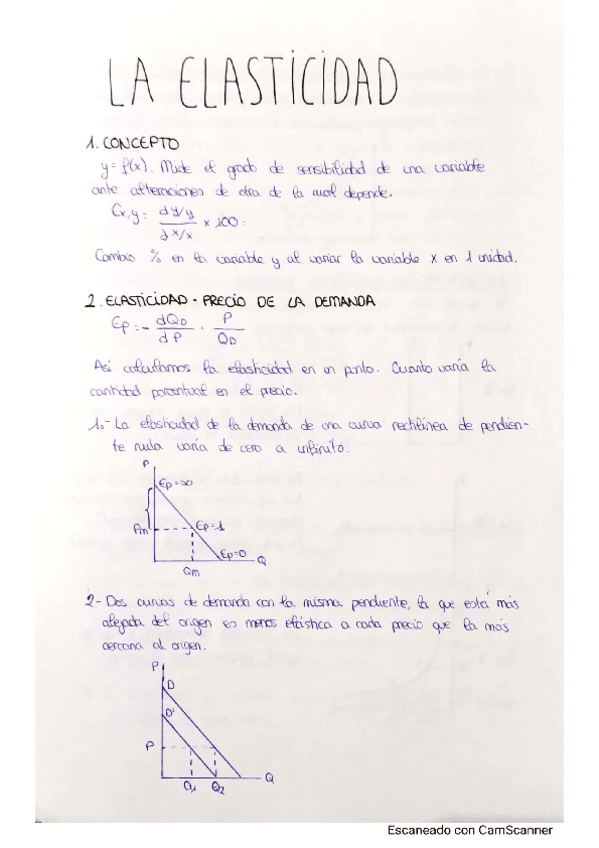 LA ELASTICIDAD
1. CONCEPTO
y = f(x). Mide el grado de sensibilidad de una variable
ante alteraciones de otra de la cual depende.
Ex,y = dy/y / dx/x × 100
Cambio % en la variable y al variar la variable x en 1 unidad.
2. ELASTICIDAD - PRECIO DE LA DEMANDA
Ep = - dQD / dP · P / QD
Así calculamos la elasticidad en un punto. Cuanto varía la
cantidad porcentual en el precio.
1.- La elasticidad de la demanda de una curva rectilínea de pendien-
te nula varía de cero a infinito.
P
Ep=∞
Pm
Ep=1
Ep=0
Q
Qm
2.- Dos curvas de demanda con la misma pendiente, la que está más
alejada del origen es menos elástica a cada precio que la más
cercana al origen.
P
D
D'
P
Q
Q1
Q2
Escaneado con CamScanner